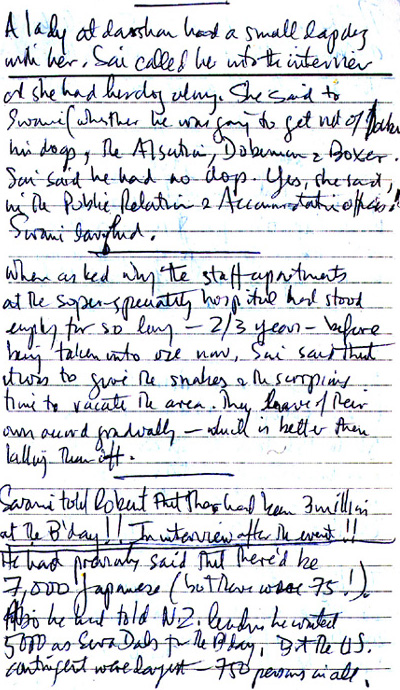 A lady at darshan had a small lapdog
with her. Sai called her into the interview
& she had her dog along. She said to
Swami (whether he was going to get rid of
his dogs, the Alsatian, Doberman & Boxer.
Sai said he had no dogs. Yes, she said,
in the Public Relation & Accomodation offices!
Swami laughed.
When asked why the staff apartments
at the super-speciality hospital had stood
empty for so long – 2/3 years – before
being taken into use now, Sai said that
it was to give the snakes & the scorpions
time to vacate the area. They leave of their
own accord gradually – which is better than
killing them off.
Swami told Robert that there had been 3 million
at the B'day!! In interview after the event!!
He had previously said that there'd be
7,000 Japanese (but there were 75!).
Also he had told N.Z. leader he wanted
5000 as Seva Dals for the B'day, But the U.S.
contingent were largest – 750 persons in all.